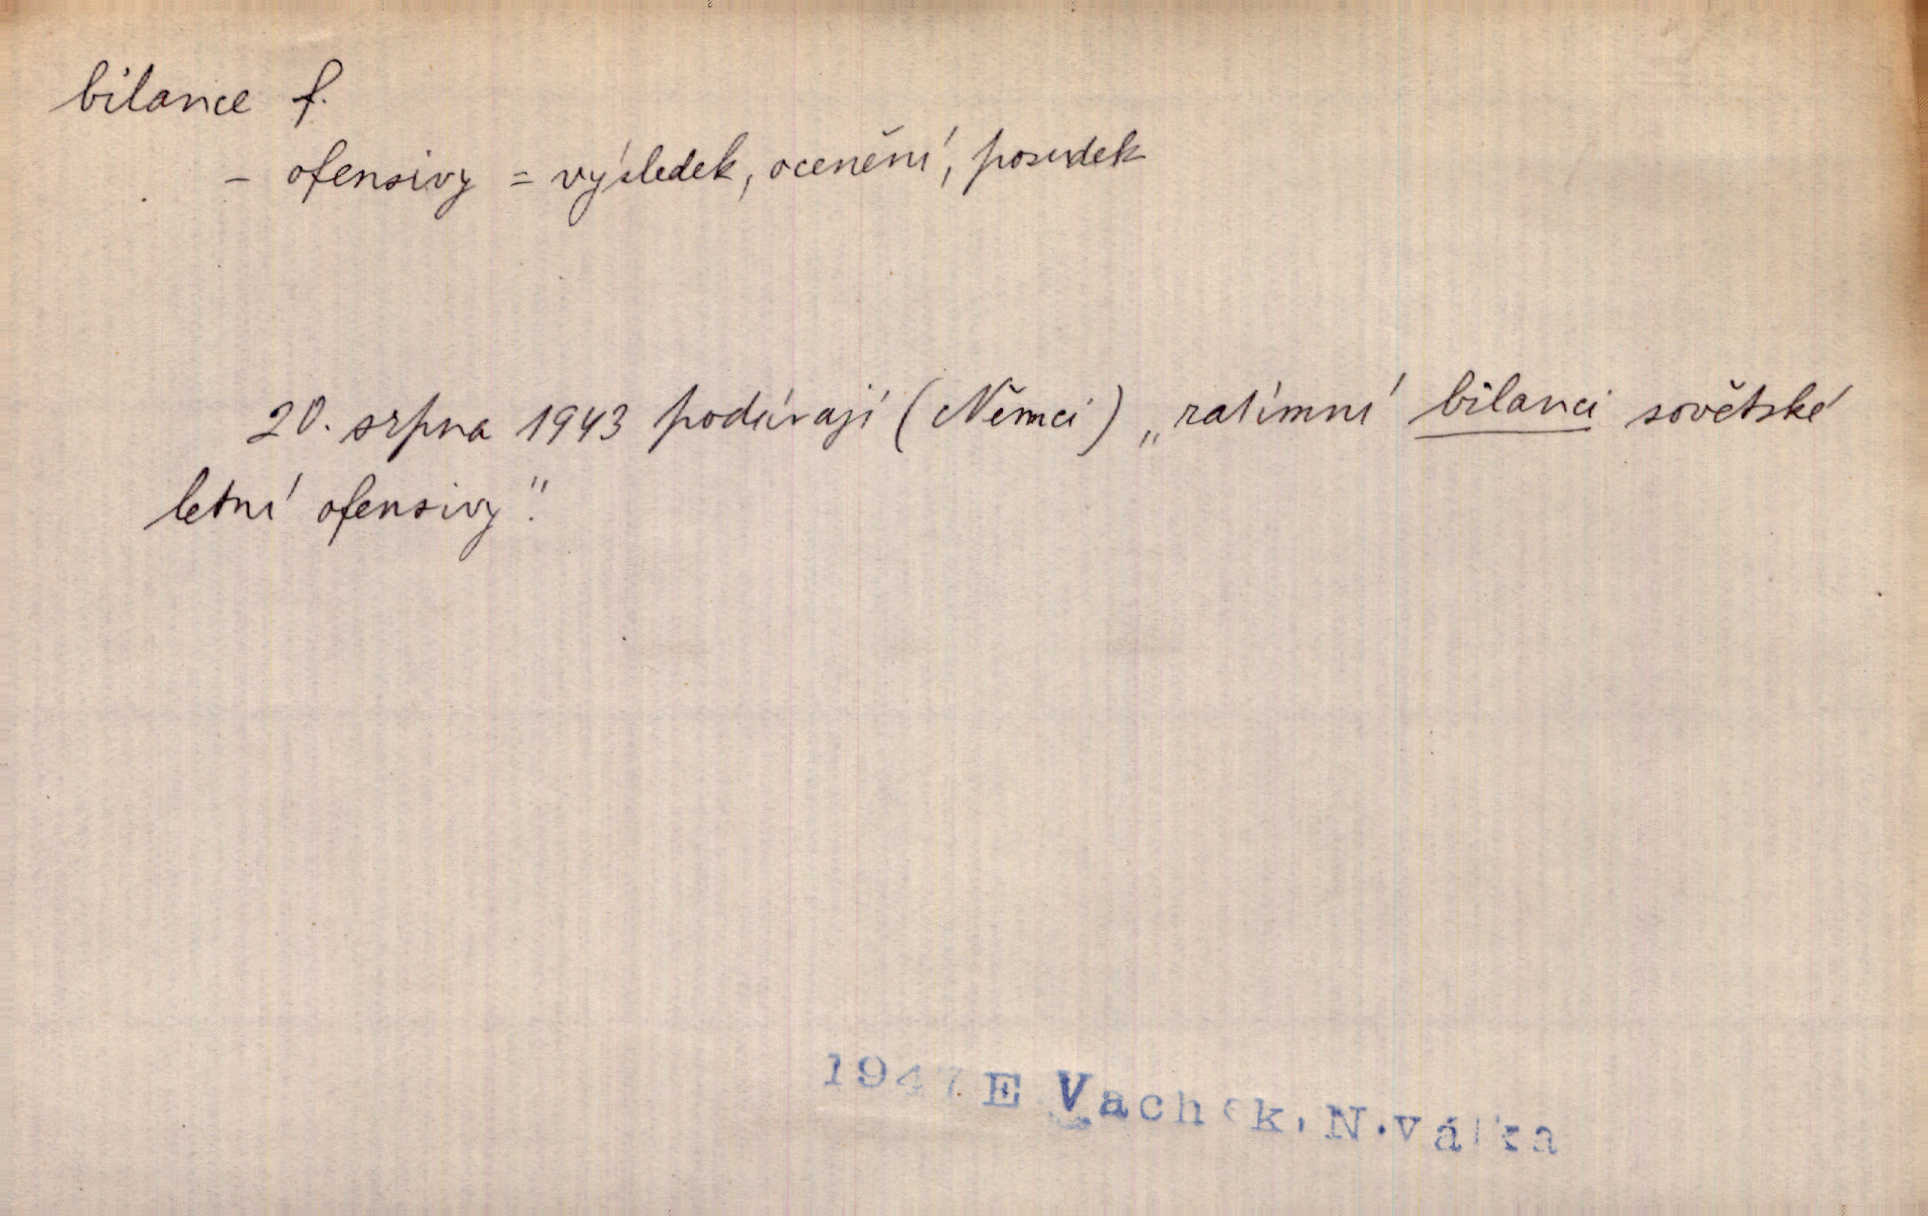 bilance f.
– ofensivy = výsledek, ocenění, posudek
20. srpna 1943 podávají (Němci) „zatímní bilanci sovětské
letní ofensivy".
1947 E Vachek, N.válka